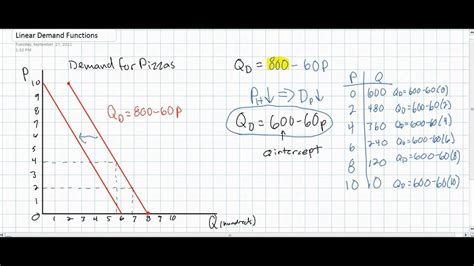 Linear Demand Functions
Tuesday, September 27, 2011
Demand for Pizzas
P
10
9
8
7
6
5
4
3
2
1
0
1 2 3 4 5 6 7 8 9 10
Q (hundreds)
QD = 800-60P
QD = 800-60P
P_H↓ ⇒ DP↓
QD = 600-60P
Q intercept
P Q
0 600 QD=600-60(0)
2 480 QD=600-60(2)
4 360 QD=600-60(4)
6 240 QD=600-60(6)
8 120 QD=600-60(8)
10 0 QD=600-60(10)